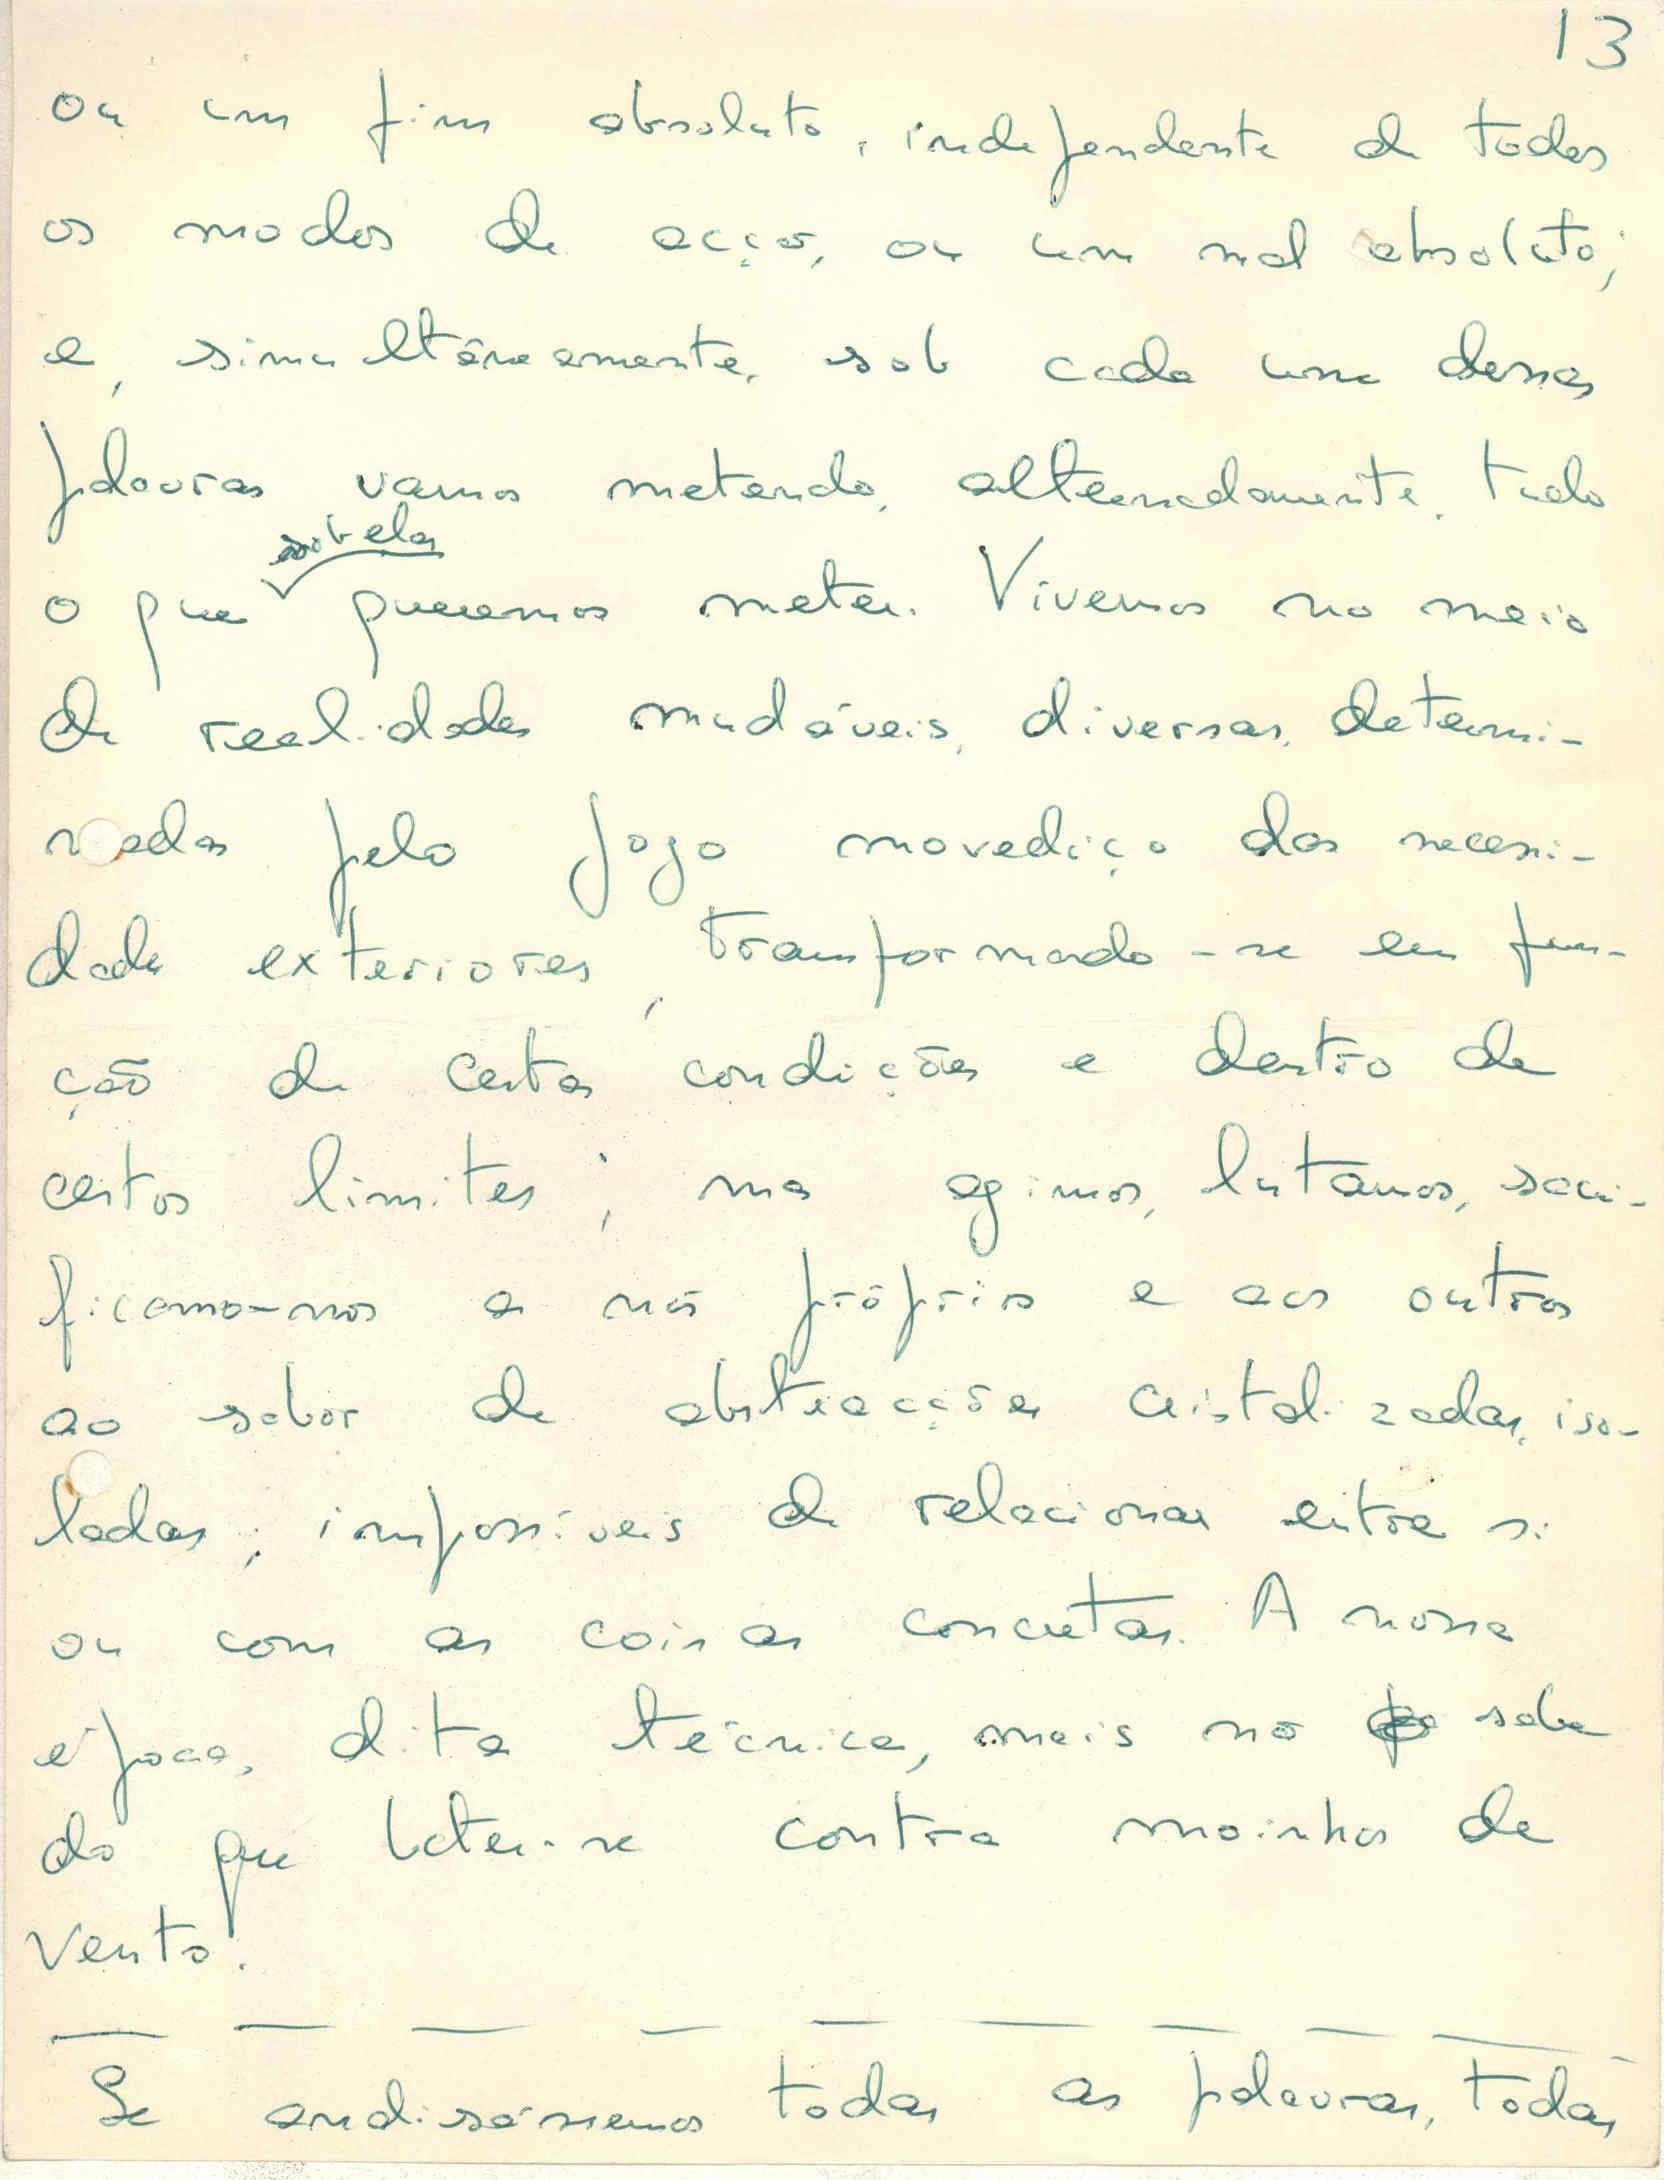 13
ou um fim absoluto, independente de todos
os modos de acção, ou um mal absoluto;
e, simultâneamente, sob cada uma dessas
palavras vamos metendo, alternadamente, tudo
sob elas
o que queremos meter. Vivemos no meio
de realidades mudáveis, diversas, determi-
nadas pelo jogo movediço das necessi-
dades exteriores, transformando-se em fun-
ção de certas condições e dentro de
certos limites; mas agimos, lutamos, sacri-
ficamo-nos a nós próprios e aos outros
ao sabor de abstracções cristalizadas, iso-
ladas, impossíveis de relacionar entre si
ou com as coisas concretas. A nossa
época, dita técnica, mais não sabe
do que bater-se contra moinhos de
vento.
Se analisássemos todas as palavras, todas